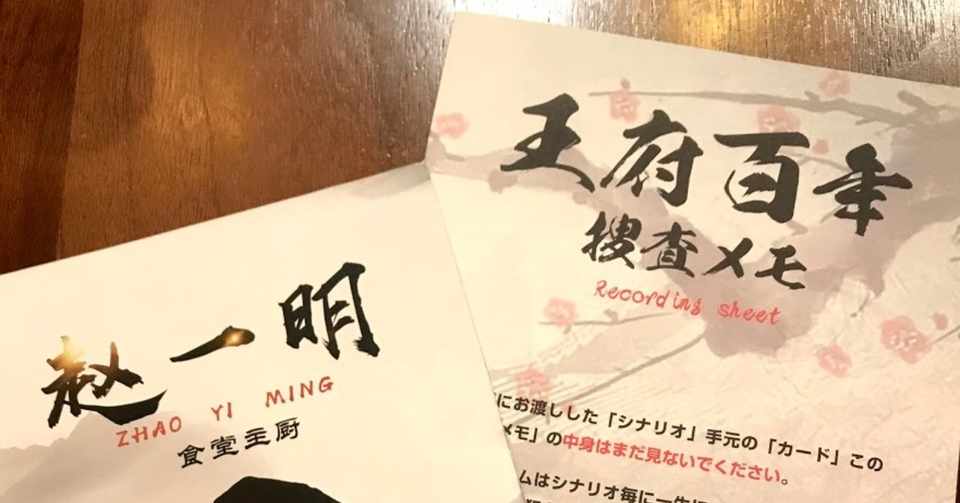 赵一明
ZHAO YI MING
食堂主厨
王府百年
捜査メモ
Recording sheet
にお渡しした「シナリオ」手元の「カード」この
メモ」の中身はまだ見ないでください。
ムはシナリオ毎に一生に